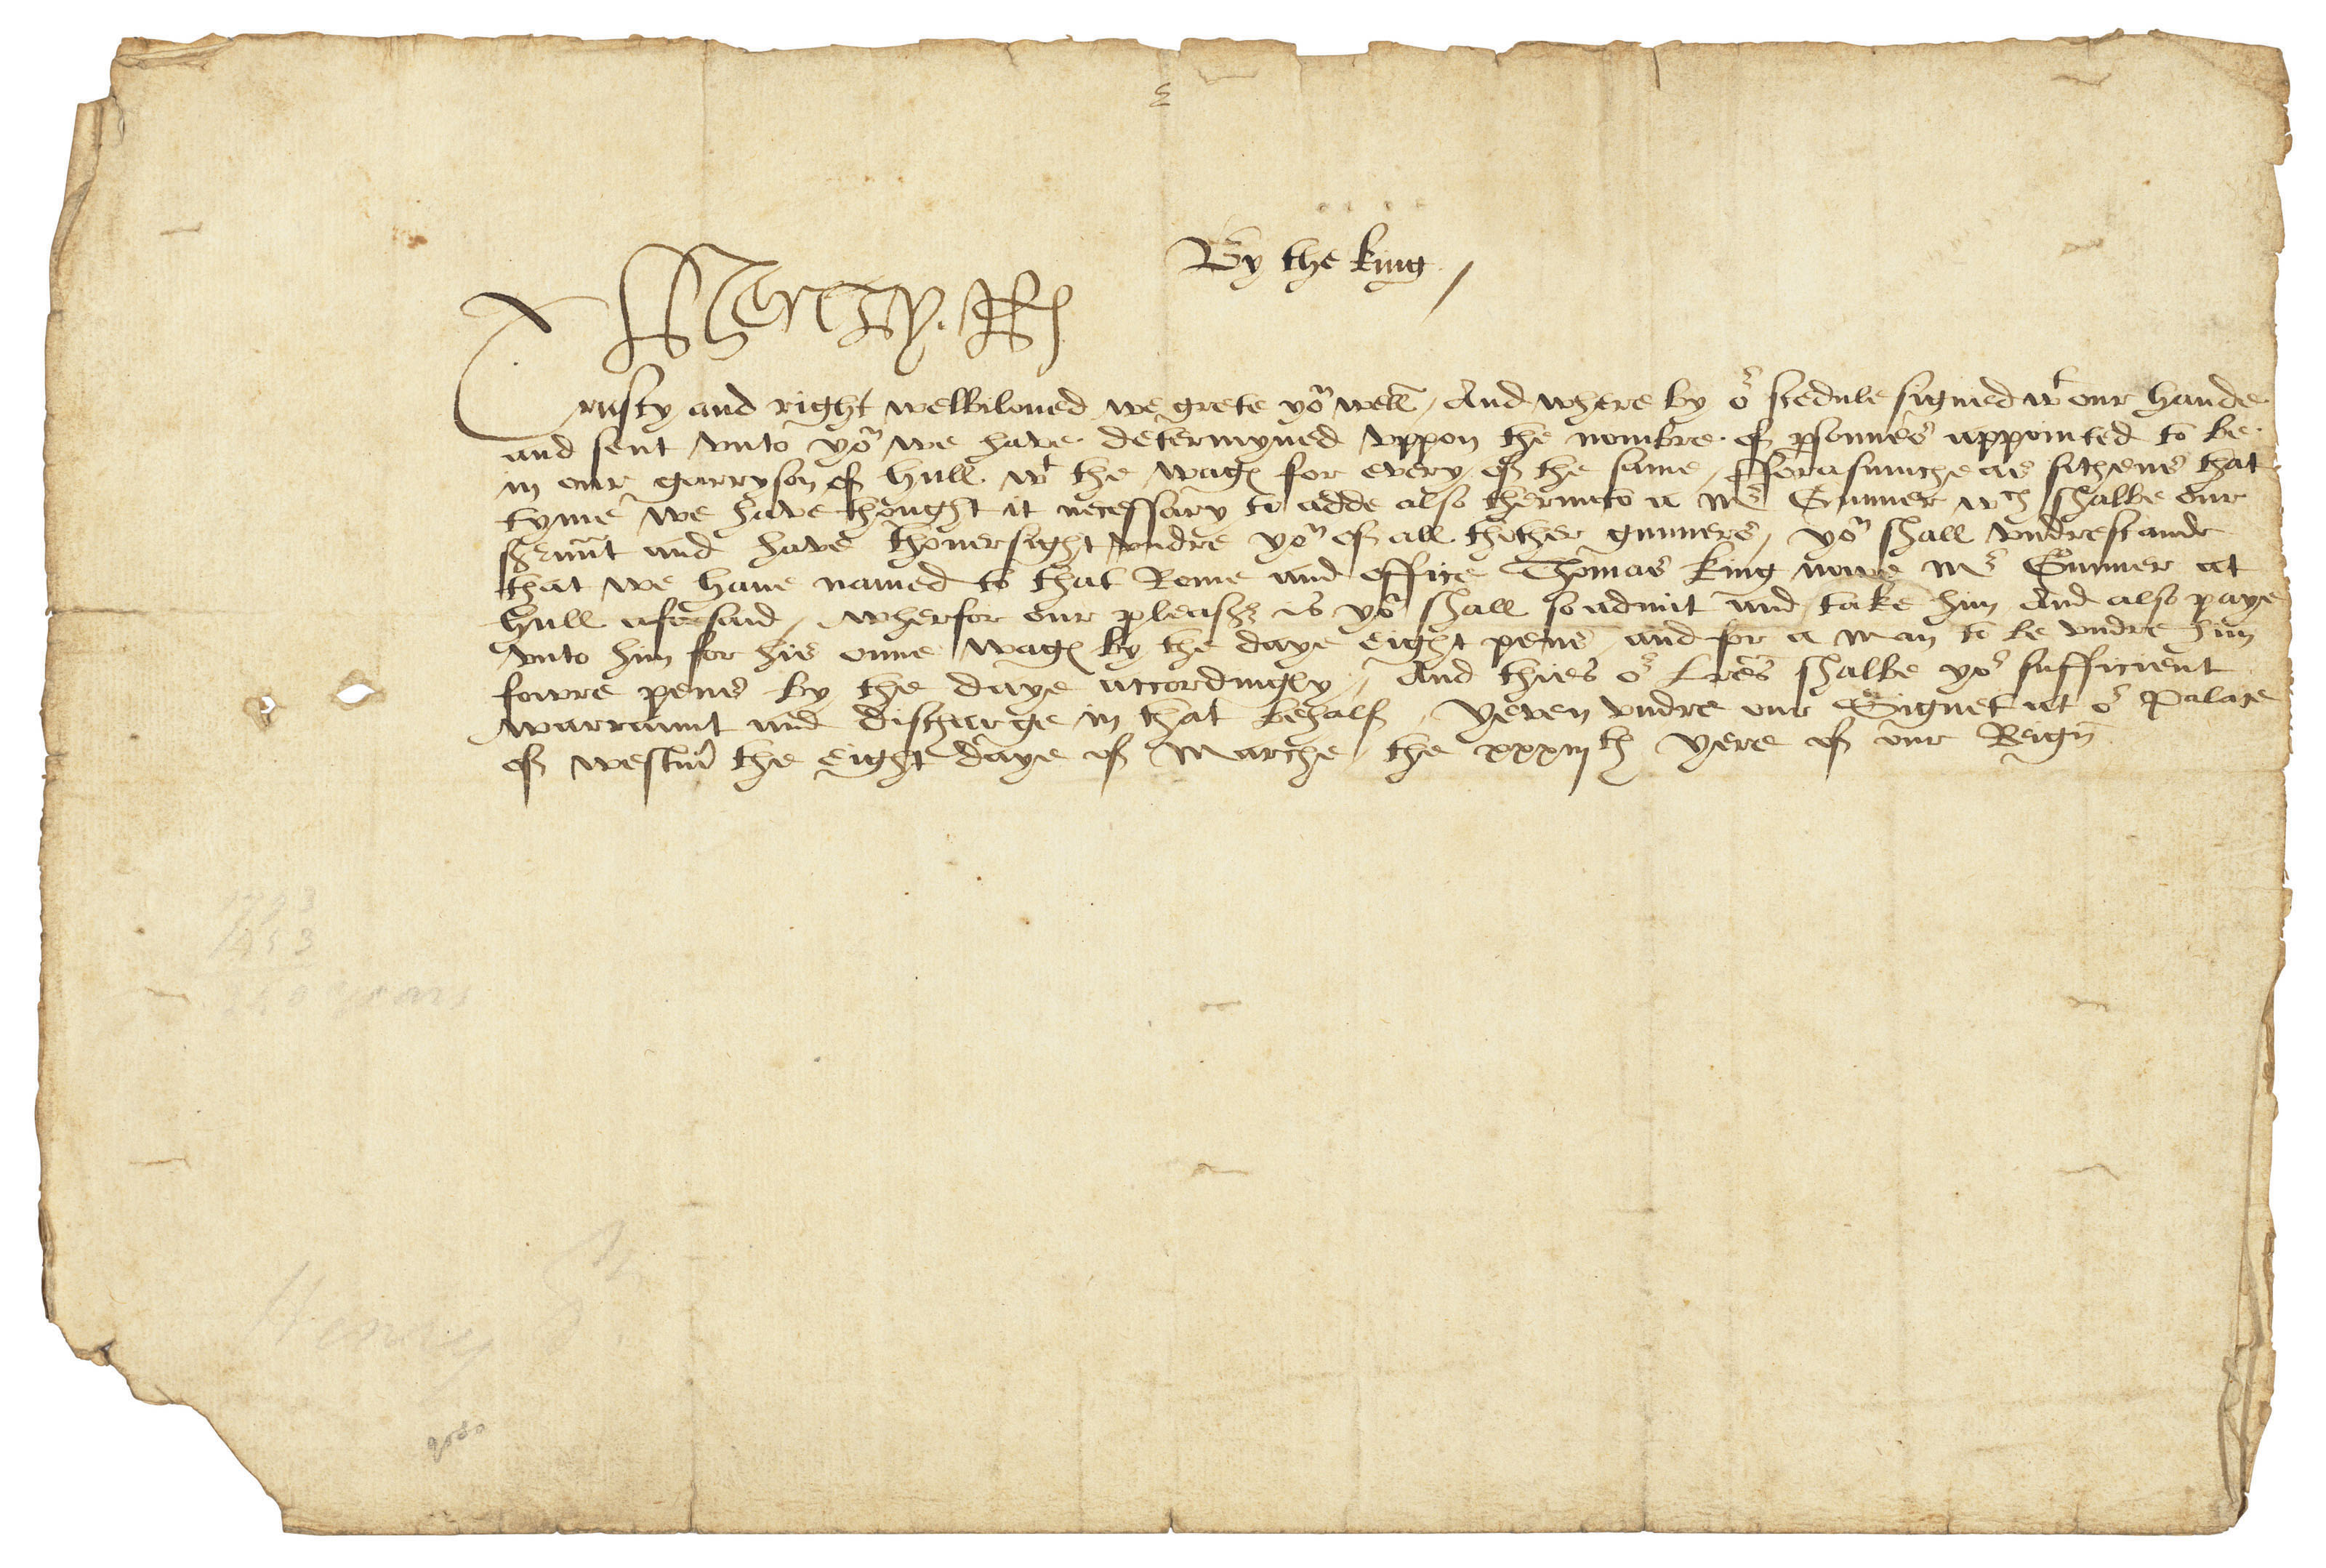 By the king /
Henry R
Trusty and right welbiloued we grete yoᵘ well / And where by oʳ scedule signed wᵗ our hande
and sent vnto yoᵘ we have determyned vppon the nombre of psonnes appointed to be
in our garryson of hull wᵗ the wages for every of the same / fforasmuche as sithens that
tyme we have thought it necessary to adde also thervnto a Mʳ Gunner wᶜh shalbe our
sʳuñt and have thouersight vndre yoᵘ of all thother gunners / yoᵘ shall vndrestande
that we haue named to that Rome and office Thomas king nowe Mʳ Gunner at
hull aforesaid / wherfor our pleasʳ is yoᵘ shall so admit and take him And also paye
vnto him for his onne wages by the daye eight pens and for a man to be vndre him
fowre pens by the daye accordingly / And thies oʳ lr̃es shalbe yoʳ sufficient
warraunt and discharge in that behalf / Yeven vndre our Signet at oʳ Palace
of westm̃ the eight daye of Marche / the xxxiijth yere of our Reign
1793
1453
340 years
Henry 8